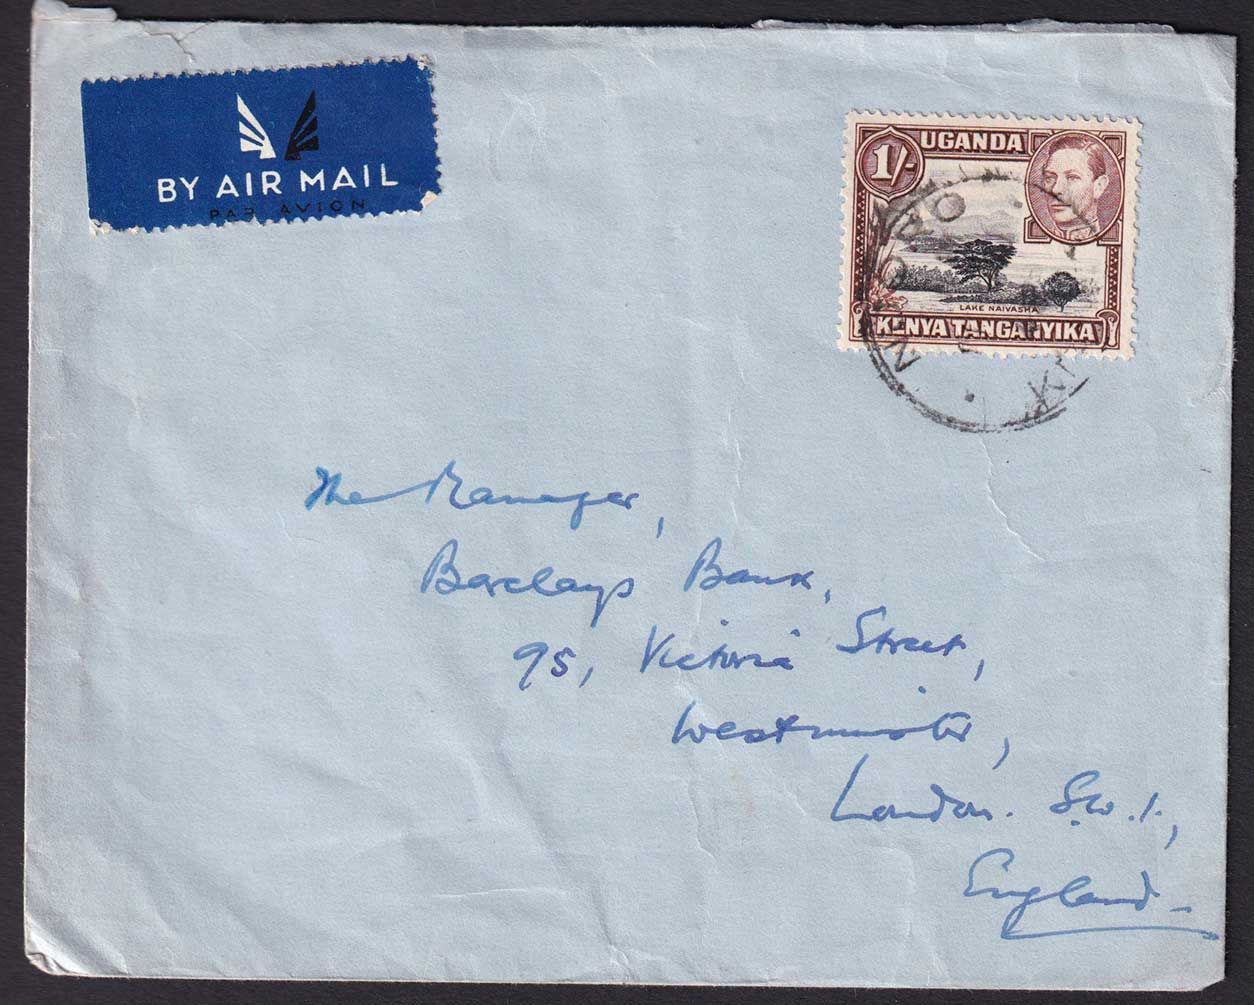 BY AIR MAIL
PAR AVION
1/-
UGANDA
LAKE NAIVASHA
KENYA TANGANYIKA
NJORO
The Manager,
Barclays Bank,
95, Victoria Street,
Westminster,
London. S.W.1.,
England